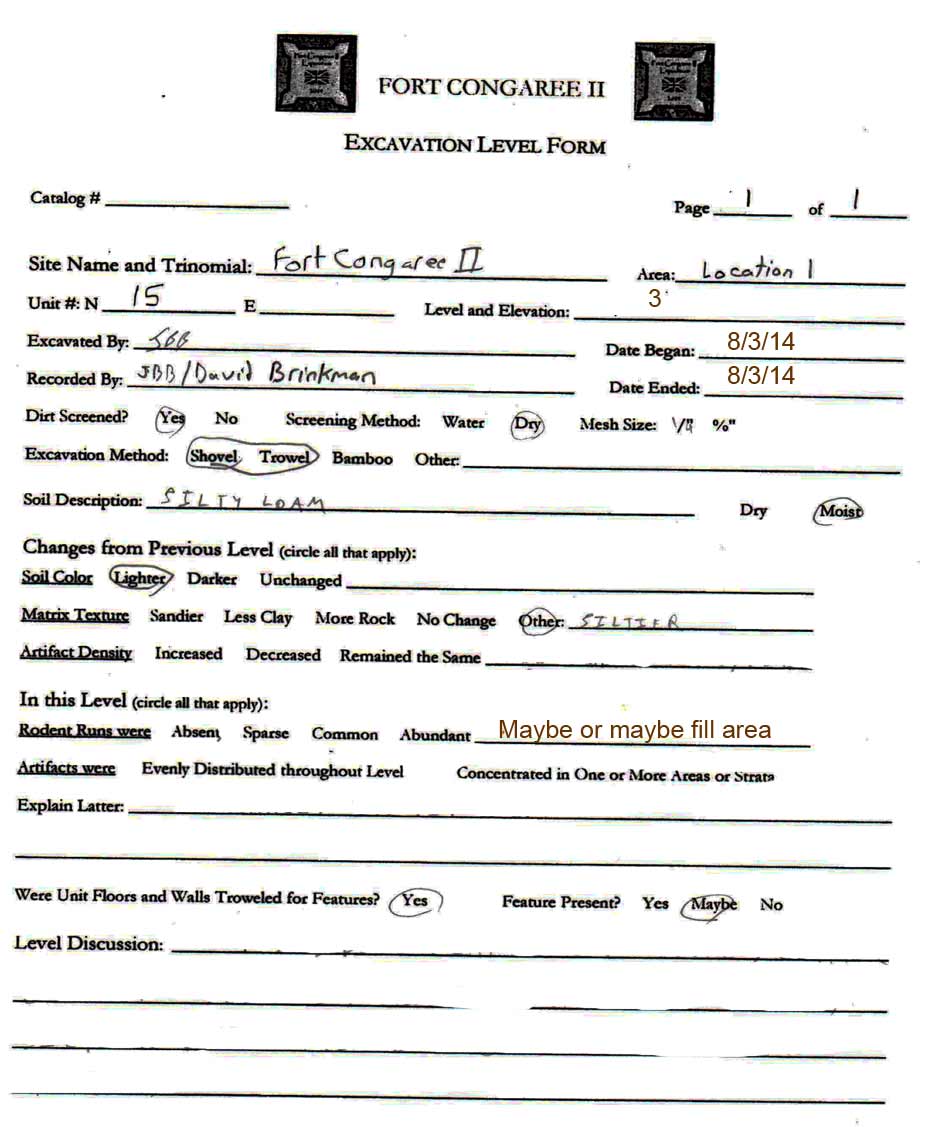 FORT CONGAREE II
EXCAVATION LEVEL FORM
Catalog #
Page 1 of 1
Site Name and Trinomial: Fort Congaree II Area: Location 1
Unit #: N 15 E Level and Elevation: 3
Excavated By: JBB Date Began: 8/3/14
Recorded By: JBB/David Brinkman Date Ended: 8/3/14
Dirt Screened? Yes No Screening Method: Water Dry Mesh Size: 1/4 %"
Excavation Method: Shovel Trowel Bamboo Other:
Soil Description: SILTY LOAM Dry Moist
Changes from Previous Level (circle all that apply):
Soil Color Lighter Darker Unchanged
Matrix Texture Sandier Less Clay More Rock No Change Other: SILTIER
Artifact Density Increased Decreased Remained the Same
In this Level (circle all that apply):
Rodent Runs were Absent Sparse Common Abundant Maybe or maybe fill area
Artifacts were Evenly Distributed throughout Level Concentrated in One or More Areas or Strata
Explain Latter:
Were Unit Floors and Walls Troweled for Features? Yes Feature Present? Yes Maybe No
Level Discussion: